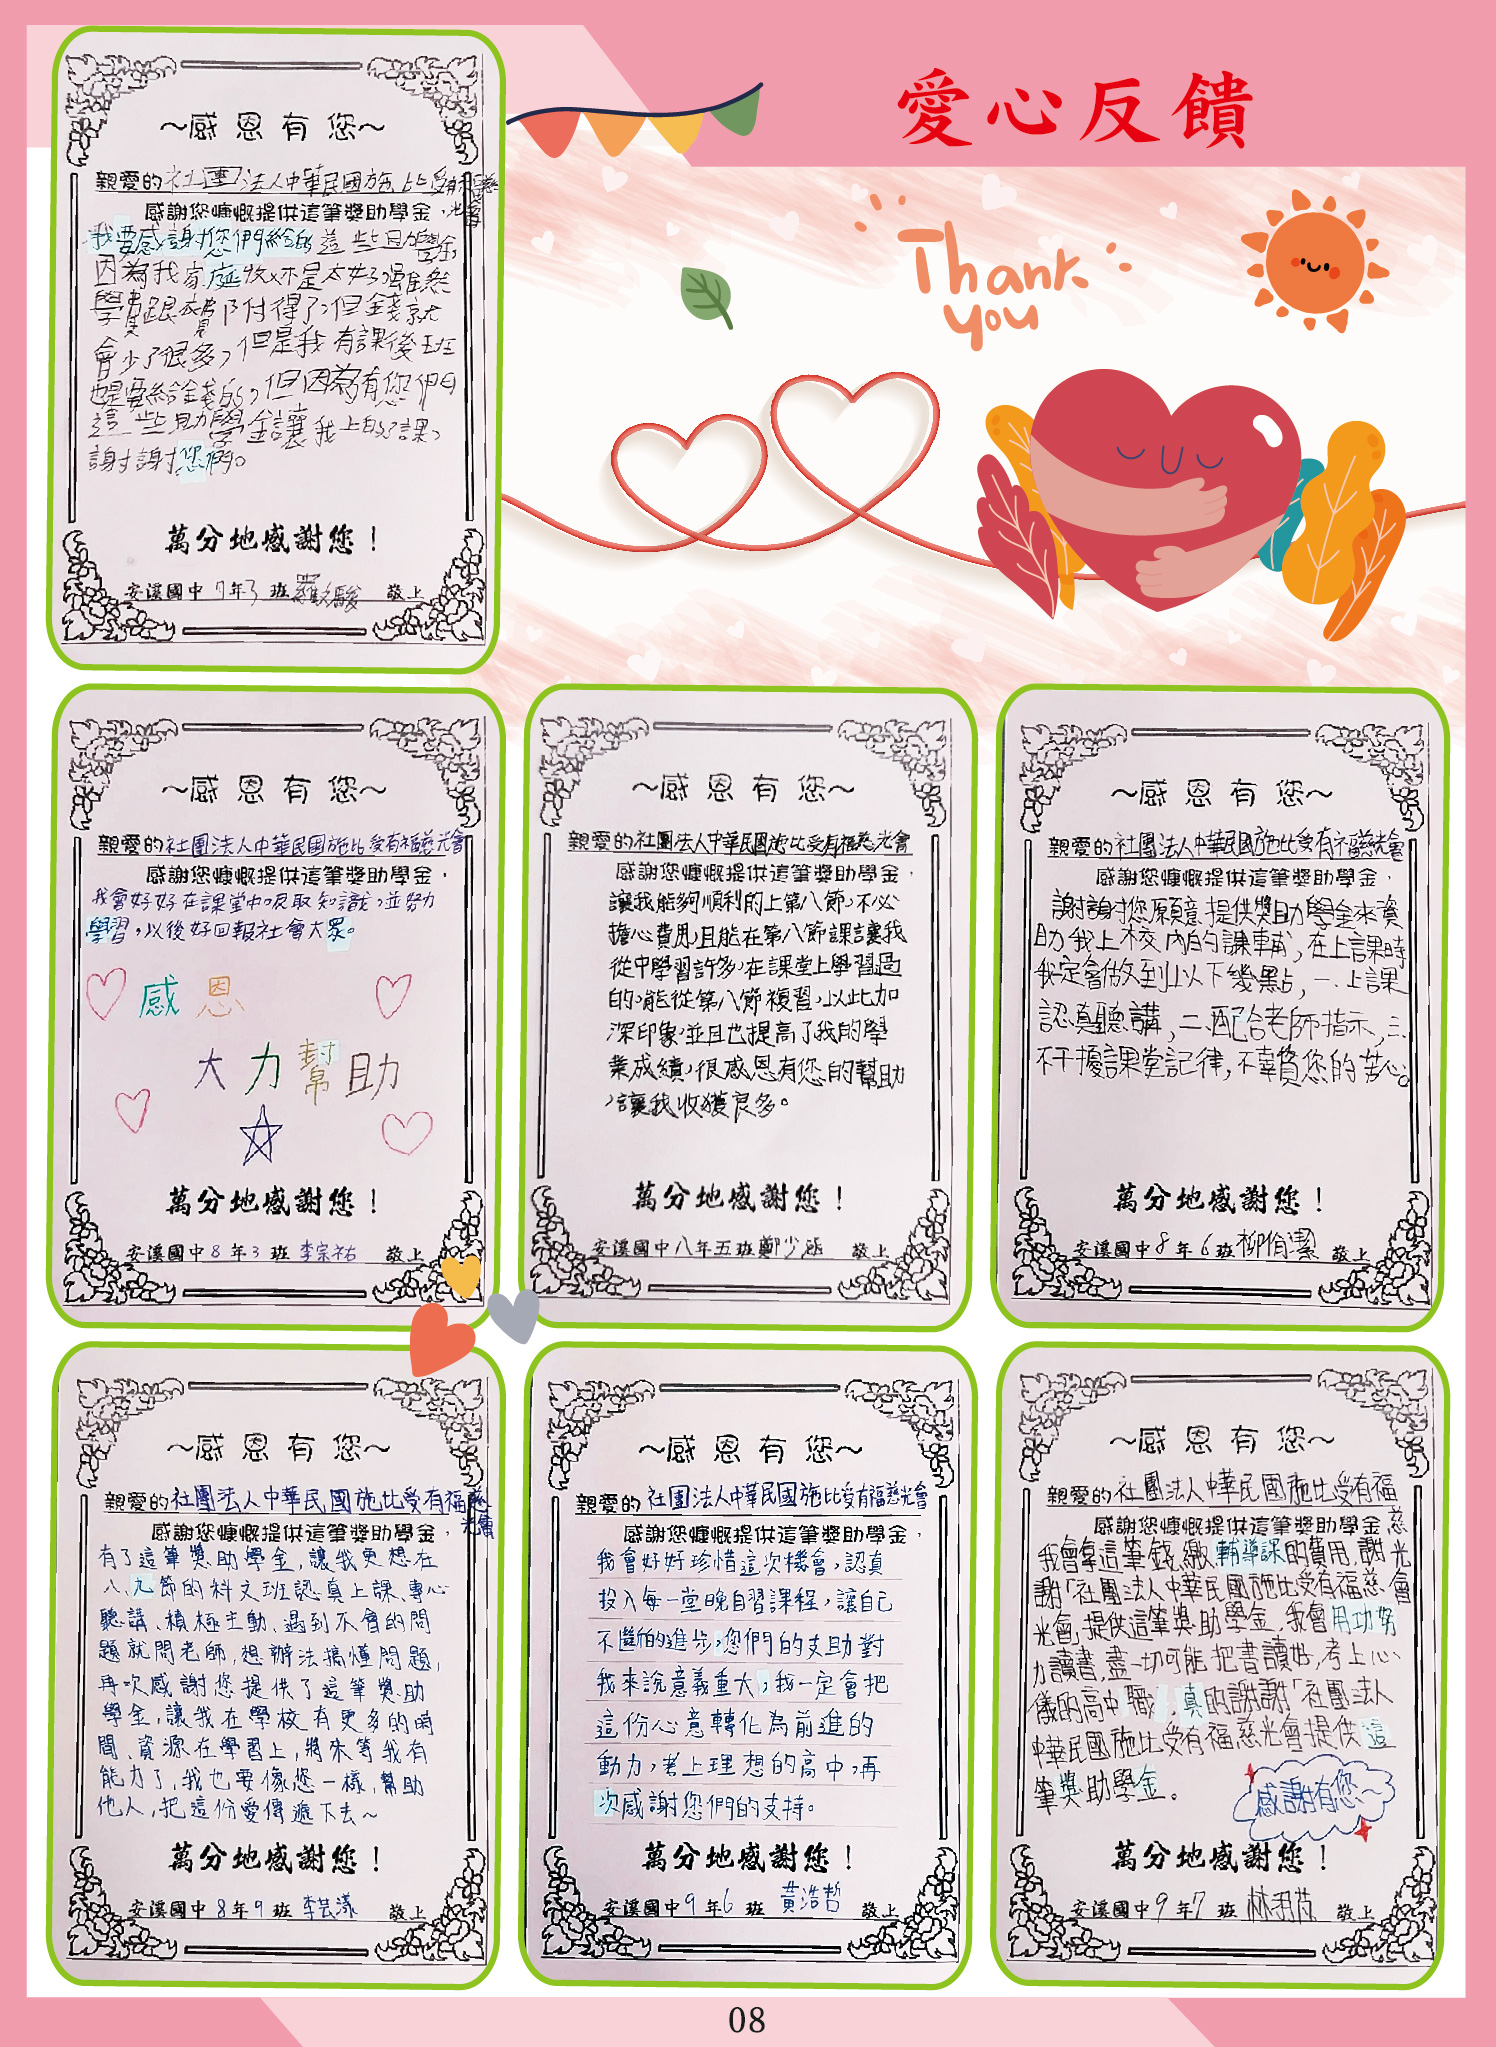 愛心反饋
Thank
you
~感恩有您~
親愛的社團法人中華民國施比受有福慈
光會
感謝您慷慨提供這筆獎助學金，
我要感謝您們給的這些助學金,
因為我家庭收入不是太好,雖然
學費跟 付得了,但錢就
會少了很多,但是我有課後班
也是要給錢的,但因為有您們的
這一些助學金讓我上的好課,
謝謝您們。
萬分地感謝您！
安溪國中7年3班 敬上
~感恩有您~
親愛的社團法人中華民國施比受有福慈光會
感謝您慷慨提供這筆獎助學金，
我會好好在課堂中吸取知識,並努力
學習,以後好回報社會大眾。
感恩
大力幫助
萬分地感謝您！
安溪國中8年3班李宗祐 敬上
~感恩有您~
親愛的社團法人中華民國施比受有福慈光會
感謝您慷慨提供這筆獎助學金，
讓我能夠順利的上第八節,不必
擔心費用,且能在第八節課讓我
從中學習許多,在課堂上學習過
的,能從第八節複習,以此加
深印象,並且也提高了我的學
業成績,很感恩有您的幫助
,讓我收獲良多。
萬分地感謝您！
安溪國中八年五班鄭少涵 敬上
~感恩有您~
親愛的社團法人中華民國施比受有福慈光會
感謝您慷慨提供這筆獎助學金，
謝謝您願意提供獎助學金來資
助我上校內的課輔,在上課時
我定會做到以下幾點,一、上課
認真聽講,二、配合老師指示,三、
不干擾課堂記律,不辜負您的苦心。
萬分地感謝您！
安溪國中8年6班柳佾潔 敬上
~感恩有您~
親愛的社團法人中華民國施比受有福慈
光會
感謝您慷慨提供這筆獎助學金，
有了這筆獎助學金,讓我更想在
八、九節的科文班認真上課、專心
聽講、積極主動、遇到不會的問
題就問老師,想辦法搞懂問題,
再次感謝您提供了這筆獎助
學金,讓我在學校有更多的時
間、資源在學習上,將來等我有
能力了,我也要像您一樣,幫助
他人,把這份愛傳遞下去~
萬分地感謝您！
安溪國中8年9班李芸漾 敬上
~感恩有您~
親愛的社團法人中華民國施比受有福慈光會
感謝您慷慨提供這筆獎助學金，
我會好好珍惜這次機會,認真
投入每一堂晚自習課程,讓自己
不斷的進步,您們的支助對
我來說意義重大,我一定會把
這份心意轉化為前進的
動力,考上理想的高中,再
次感謝您們的支持。
萬分地感謝您！
安溪國中9年6班 黃浩哲 敬上
~感恩有您~
親愛的社團法人中華民國施比受有福
慈光會
感謝您慷慨提供這筆獎助學金
我會拿這筆錢,繳輔導課的費用,謝
謝「社團法人中華民國施比受有福慈
光會」提供這筆獎助學金,我會用功努
力讀書,盡一切可能把書讀好,考上心
儀的高中職,真的謝謝「社團法人
中華民國施比受有福慈光會提供這
筆獎助學金。
感謝有您~
萬分地感謝您！
安溪國中9年7班 敬上
08